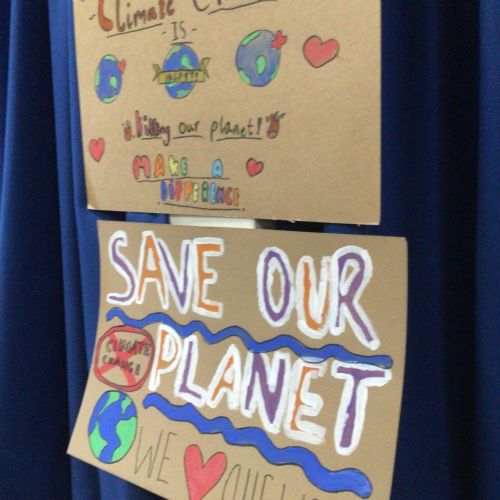 Climate
- IS -
Killing our planet!
MAKE A
DIFFERENCE
SAVE OUR
CLIMATE
CHANGE
PLANET
WE